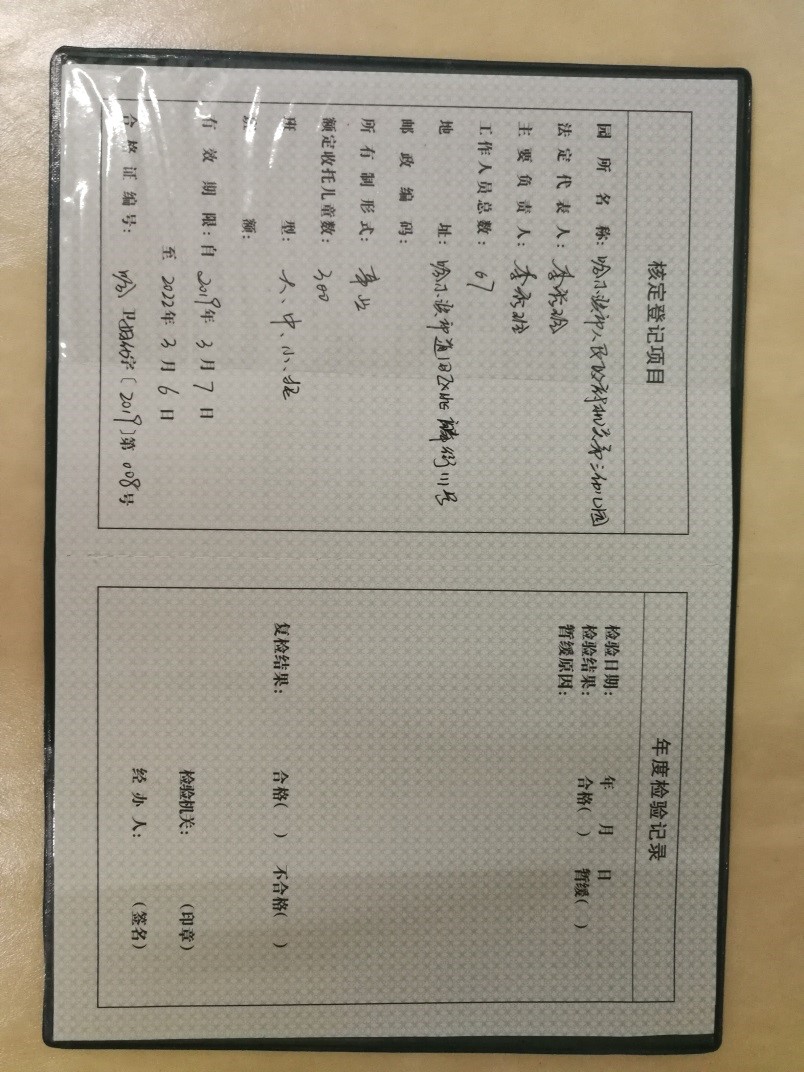 核定登记项目
园所名称：哈尔滨市人民政府机关第二幼儿园
法定代表人：李秀
主要负责人：李秀
工作人员总数：67
地址：哈尔滨市道里区 街111号
邮政编码：
所有制形式：事业
额定收托儿童数：300
班型：大、中、小、托
额：
有效期限：自2019年3月7日
至2022年3月6日
合格证编号：哈卫妇幼字〔2019〕第008号
年度检验记录
检验日期： 年 月 日
检验结果： 合格( ) 暂缓( )
暂缓原因：
复检结果： 合格( ) 不合格( )
检验机关： (印章)
经办人： (签名)